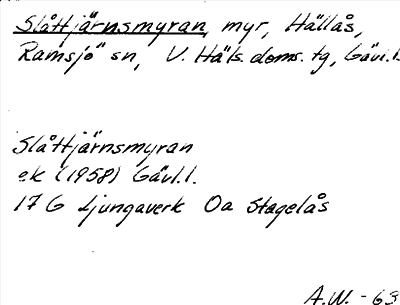 Slåttjärnsmyran, myr, Hällås,
Ramsjö sn, V. Häls. doms. tg, Gävl.l.
Slåttjärnsmyran
ek (1958) Gävl.l.
17 G Ljungaverk Oa Stagelås
A.W. - 63